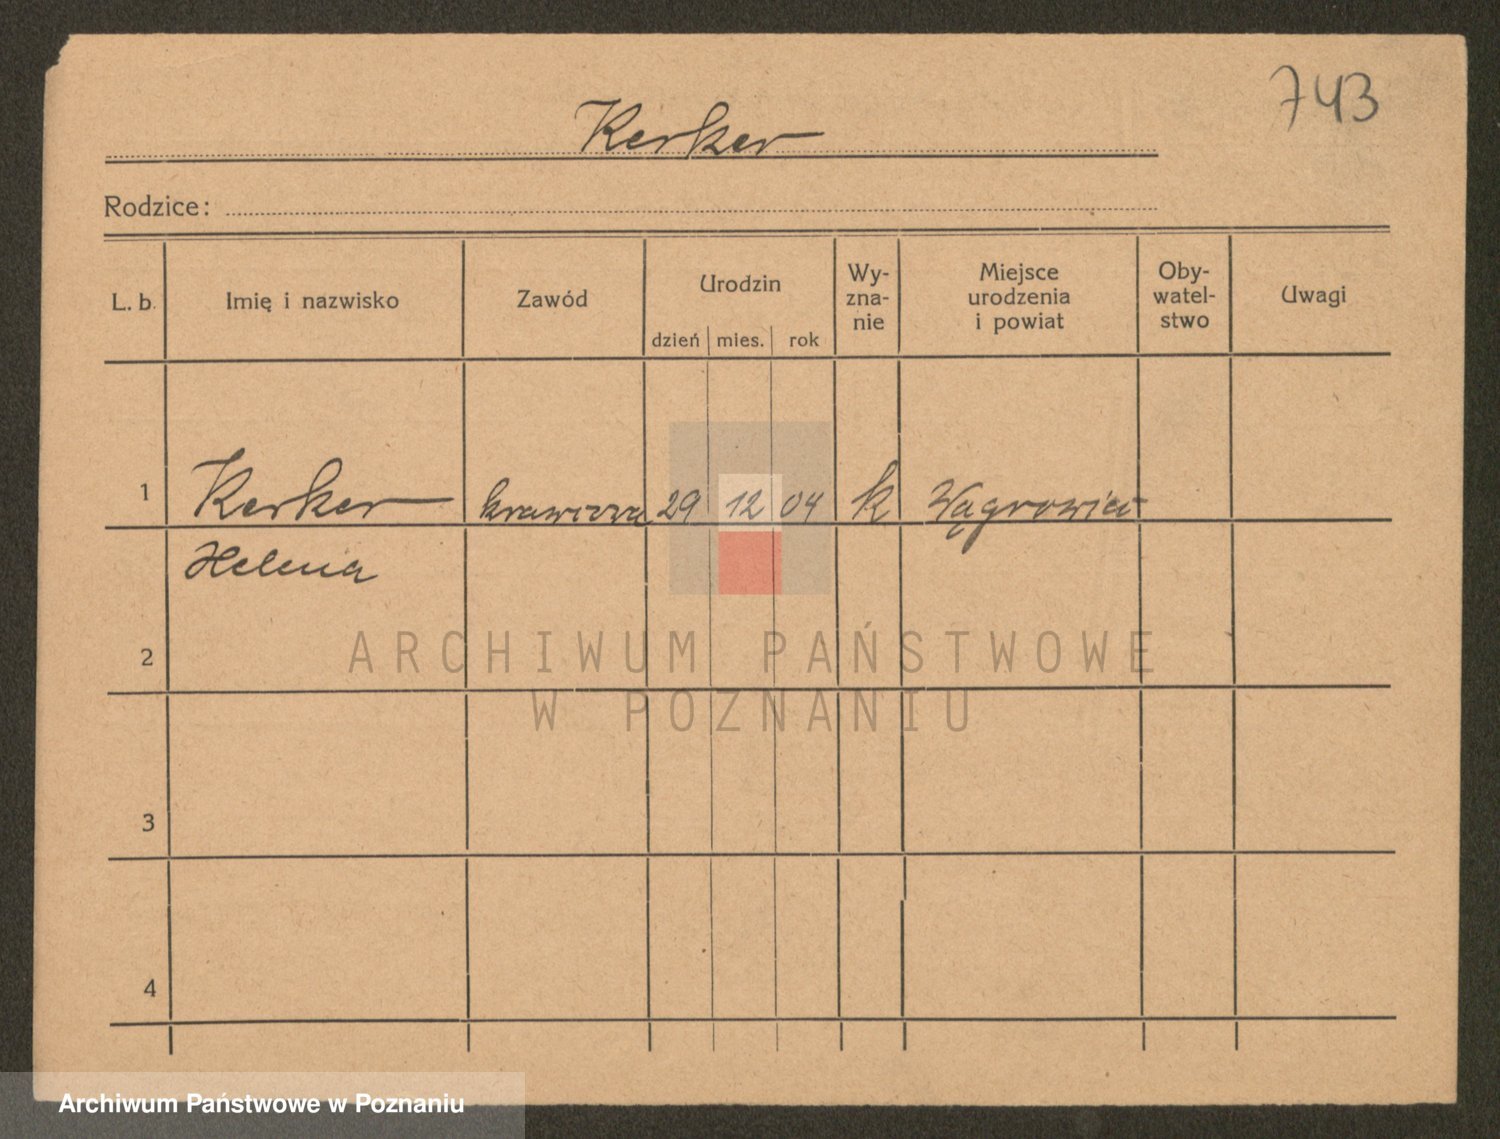 743
Kerker
Rodzice:
L. b. Imię i nazwisko Zawód Urodzin dzień mies. rok Wy-zna-nie Miejsce urodzenia i powiat Oby-watel-stwo Uwagi
1 Kerker krawcowa 29 12 04 k Wągrowiec
Helena
2
ARCHIWUM PAŃSTWOWE
W POZNANIU
3
4
Archiwum Państwowe w Poznaniu